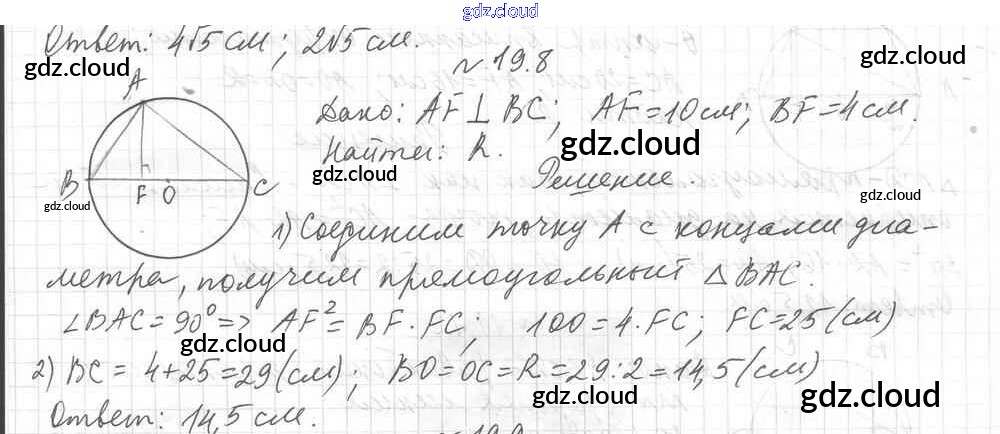 gdz.cloud
Ответ: 4√5 см; 2√5 см.
№ 19.8
Дано: AF ⊥ BC; AF = 10 см; BF = 4 см.
Найти: R.
Решение.
A
B F O C
1) Соединим точку A с концами диа-
метра, получим прямоугольный △ BAC.
∠BAC = 90° => AF² = BF · FC; 100 = 4 · FC; FC = 25 (см)
2) BC = 4 + 25 = 29 (см); BO = OC = R = 29 : 2 = 14,5 (см)
Ответ: 14,5 см.
gdz.cloud
gdz.cloud
gdz.cloud
gdz.cloud
gdz.cloud
gdz.cloud
gdz.cloud
gdz.cloud
gdz.cloud
gdz.cloud
gdz.cloud